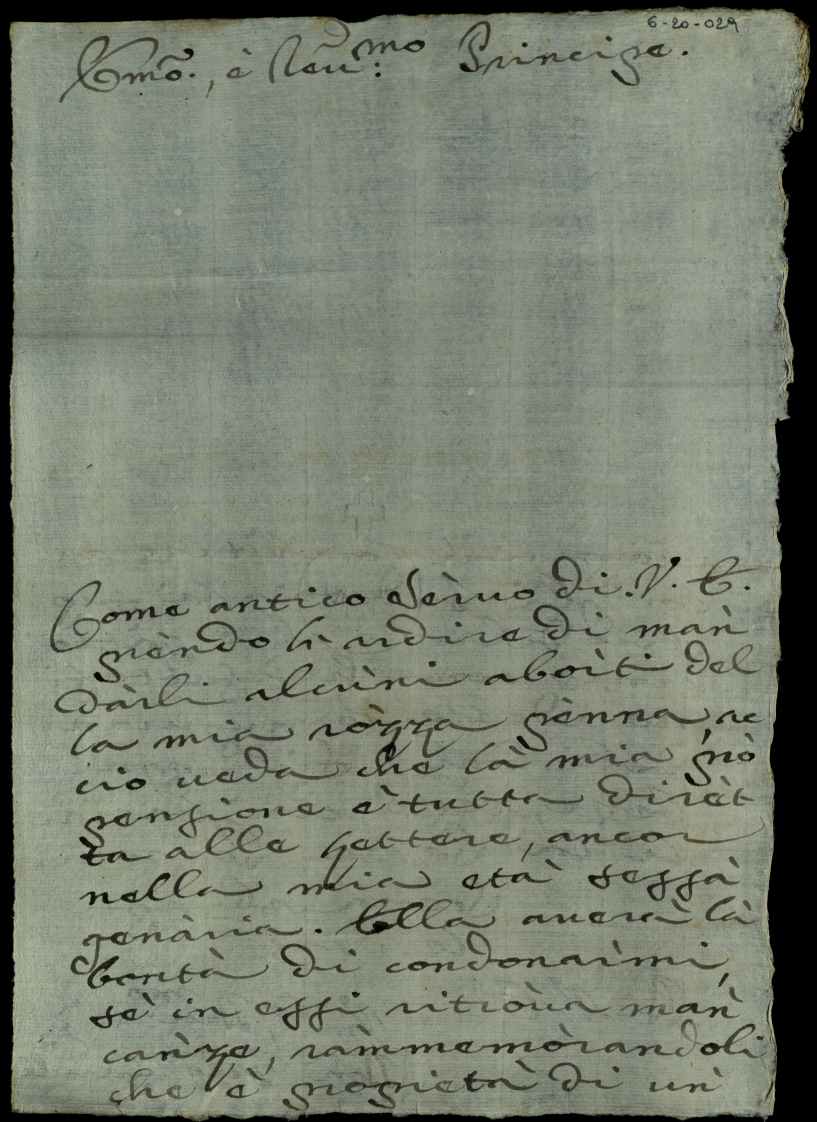 6-20-029
Emõ., è Reu:mo Principe.
Come antico Sèruo di .V. E.
prèndo l'ardire di man
dàrli alcùni abòrti del
la mia ròzza pènna, ac
ciò ueda che là mia prò
pensione è tutta dirèt
ta alle Lettere, ancor
nella mia età sessà
genària. Ella auerà là
bontà di condonarmi,
sè in essi ritròua man
cànze, ràmmemòrandoli
che è proprietà di un